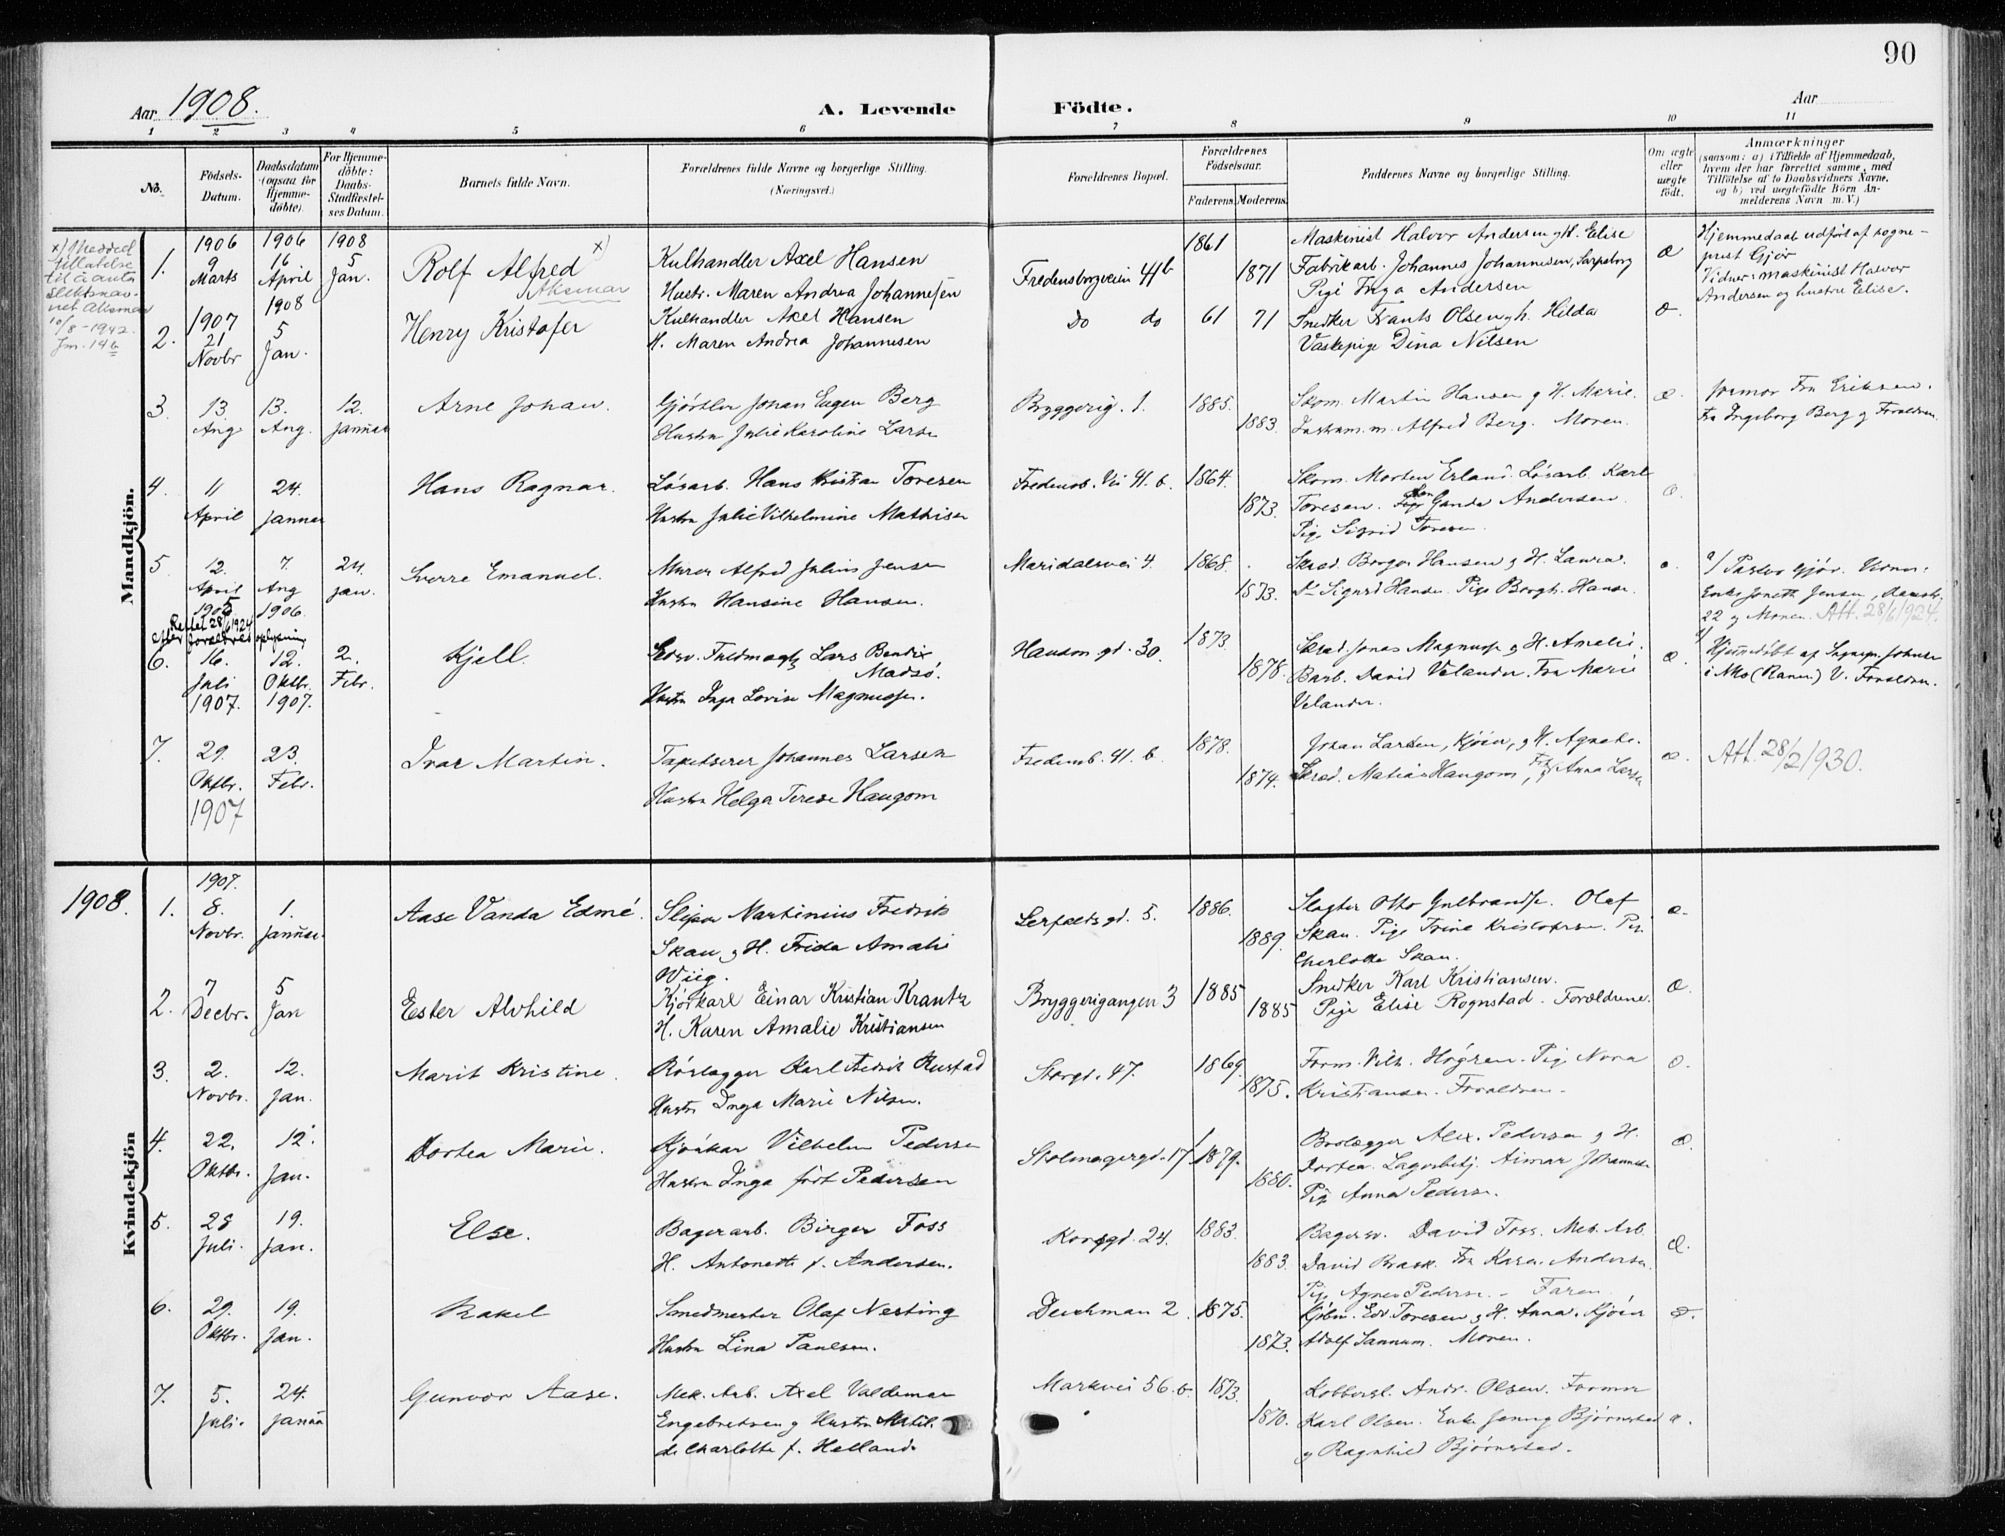 90
Aar 1908.
A. Levende Födte.
Aar
1 2 3 4 5 6 7 8 9 10 11
No.
Födsels-Datum.
Daabsdatum (ogsaa for Hjemmedöbte).
For Hjemmedöbte: Daabs-Stadfæstelses Datum.
Barnets fulde Navn.
Forældrenes fulde Navne og borgerlige Stilling.
(Næringsvei.)
Forældrenes Bopæl.
Forældrenes Födselsaar.
Faderens. Moderens.
Faddernes Navne og borgerlige Stilling.
Om ægte eller uægte födt.
Anmærkninger
(saasom: a) i Tilfælde af Hjemmedaab,
hvem der har forrettet samme, med
Tilföielse af to Daabsvidners Navne,
og b) ved uægtefödte Börn Anmelderens Navn m. V.)
x) Meddel
tillatelse
til å anta
slektsnavnet Aksmar
10/8-1942
Jnr. 146
Mandkjön.
1. 1906 9 Marts 1906 16 April 1908 5 Jan.
Rolf Alfred x)
Aksmar
Kulhandler Axel Hansen
Hustr. Maren Andrea Johannesen
Fredensborgveien 41b
1861 1871
Maskinist Halvor Andersen og H. Elise
Fabrikarb. Johannes Johannesen, Sarpsborg
Pige Inga Andersen
æ
Hjemmedaab udført af sogneprest Gjør
Vidner: maskinist Halvor
Andersen og hustru Elise.
2. 1907 21 Novbr 1908 5 Jan.
Henry Kristofer
Kulhandler Axel Hansen
H. Maren Andrea Johannesen
Do do 61 71
Snedker Frants Olsen og h. Hilda
Vaskepige Dina Nilsen
æ.
3. 13. Aug 13. Aug. 12. Januar
Arne Johan.
Gjørtler Johan Eugen Berg
Hustru Julie Karoline Larsen
Bryggerig. 1. 1885. 1883.
Skom. Martin Hansen og H. Marie.
Alfred Berg. Moren.
æ.
Jormor Fru Eriksen.
Fru Ingeborg Berg og Forældren.
4. 11 April 24. Januar
Hans Ragnar.
Løsarb. Hans Kristian Toresen
Hustru Julie Vilhelmine Mathisen
Fredensb. Vei 41. b. 1864. 1873.
Skom. Morten Erland. Løsarb. Karl
Toresen. Ganda Andersen.
Pige Sigrid Toresen.
æ.
5. 12. April 1905 7. Aug 1906. 24. Jan.
Sverre Emanuel.
Murer Alfred Julius Jensen
Hustru Hansine Hansen.
Maridalsvei 4. 1868. 1873.
Skræd. Borger Hansen og H. Laura.
Sigurd Hansen. Pige Borgh. Hansen.
a/ Pastor Gjør.
Enke Joneth Jensen,
22 og Moren. Att. 28/6 1924.
Rettet 28/6 1924
efter forældres oplysning
6. 16. Juli 1907. 12. Oktbr. 1907. 2. Febr.
Kjell.
Edsv. Fuldmægtig Lars Bendix
Madsø.
Hustru Inga Lovise Magnussen.
Hausm. gd. 30. 1873. 1878.
Skræd. Jonas Magnussen og H. Amalie.
Barb. David Velander. Fru Marie
Velander.
æ.
Hjemmedøbt af Sognepr. Johnsen
i Mo (Ranen) V. Forældren.
7. 29. Oktbr. 1907 23. Febr.
Ivar Martin.
Tapetserer Johannes Larsen
Hustru Helga Terese Haugom
Fredensb. 41. b. 1878. 1874.
Johan Larsen, Kjøien, og H. Agnethe.
Skræd. Matias Haugom, Anna Larsen
æ.
Att. 28/2 1930.
1908.
Kvindekjön
1. 1907. 8. Novbr. 1. Januar.
Aase Vanda Edmé.
Sliper Martinius Fredrik
Skau og H. Frida Amalie
Wiig.
5. 1886. 1889.
Slagter Otto Gulbrandsen. Olaf
Skau. Pige Trine Kristofersen. Pig.
Charlotte Skau.
æ.
2. 7 Decbr. 5 Jan
Ester Alvhild
Kjørkarl Einar Kristian Krantz
H. Karen Amalie Kristiansen
Bryggerigangen 3 1885 1885
Snedker Karl Kristiansen.
Pige Elise Rognstad. Forældrene.
æ.
3. 2. Novbr. 12. Jan.
Marit Kristine.
Rørlægger Karl Fredrik Rustad
Hustr. Inga Marie Nilsen.
Storgd. 47. 1869. 1875.
Form. Vilh. Høgren. Pig. Nora
Kristiansen. Forældren.
æ.
4. 22. Oktbr. 12. Jan.
Dortea Marie.
Kjørekar Vilhelm Pedersen
Hustru Inga født Pedersen
Skolmagergd. 17 1879. 1880.
Brolægger Alex. Pedersen og H.
Dortea. Lagerbetj. Aimar Johannesen
Pig. Anna Pedersen.
æ.
5. 28 Juli. 19. Jan.
Else.
Bagerarb. Birger Foss
H. Antonette f. Andersen.
Korsgd. 24. 1883. 1883.
Bagersv. David Foss. Mek. Arb.
David Brask. Fru Karen Andersen.
Pige Agnes Pedersen. – Faren.
æ.
6. 29. Oktbr. 19. Jan.
Rakel
Smedmester Olaf Nesting
Hustru Lina Paulsen.
Deichman 2. 1875. 1873.
Kjøbm. Edv. Toresen og H. Anna. Kjøier
Adolf Sannum. Moren.
æ.
7. 5. Juli. 24. Januar
Gunvor Aase.
Mek. Arb. Axel Valdemar
Engebretsen og Hustru Matilde Charlotte f. Helland.
Markvei 56. b. 1873. 1870.
Kobbersl. Andr. Olsen. Former
Karl Olsen. Enke Jenny Bjørnstad
og Ragnhild Bjørnstad.
æ.